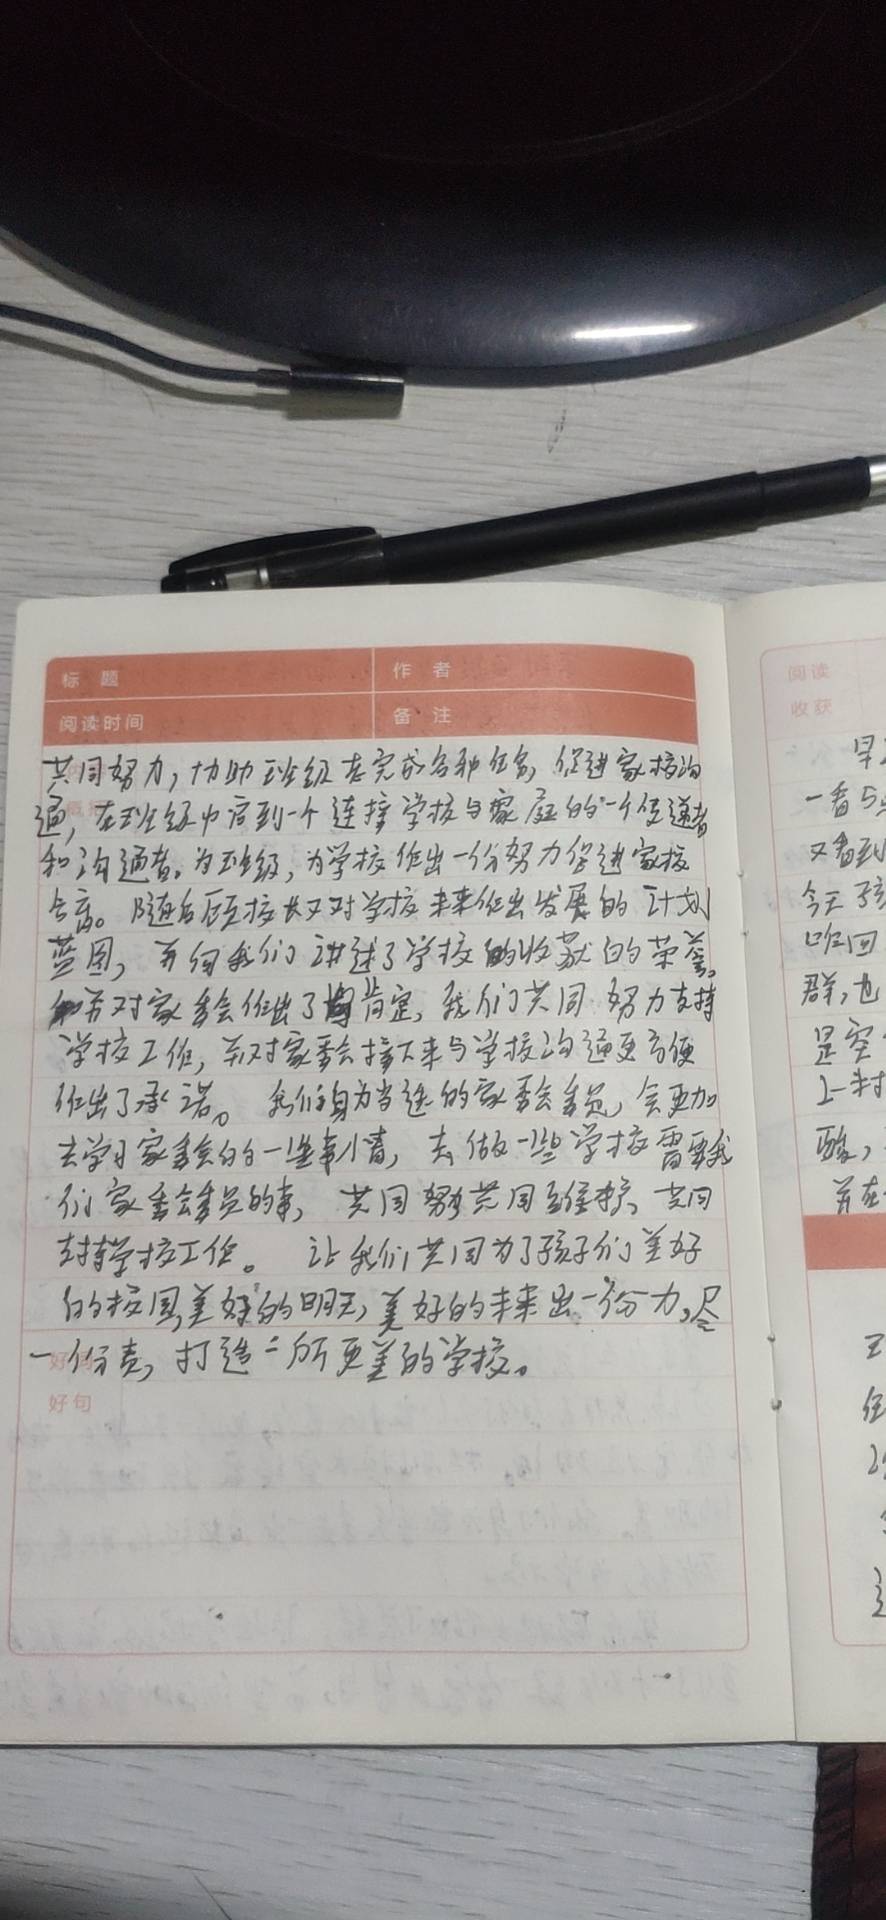 标 题 作 者
阅读时间 备 注
共同努力，协助班级去完成各种任务，促进家校沟
通，在班级中启到一个连接学校与家庭的一个传递者
和沟通者。为班级，为学校作出一份努力促进家校
随后顾校长又对学校未来作出发展的计划
蓝图，并向我们讲述了学校的收获的荣誉。
并对家委会作出了肯定，我们共同努力支持
学校工作，并对家委会接下来与学校沟通更方便
作出了承诺。我们身为当选的家委会委员，会更加
去学习家委会的的一些事情，去做一些学校需要我
们家委会委员的事，共同努力共同维护，共同
支持学校工作。让我们共同为了孩子们美好
的校园，美好的明天，美好的未来出一份力，尽
一份责，打造一所更美的学校。
好句
阅读
收获
早
一番
又看到
今天孩
咱回
群，也
是空
上一村
酸，
并在